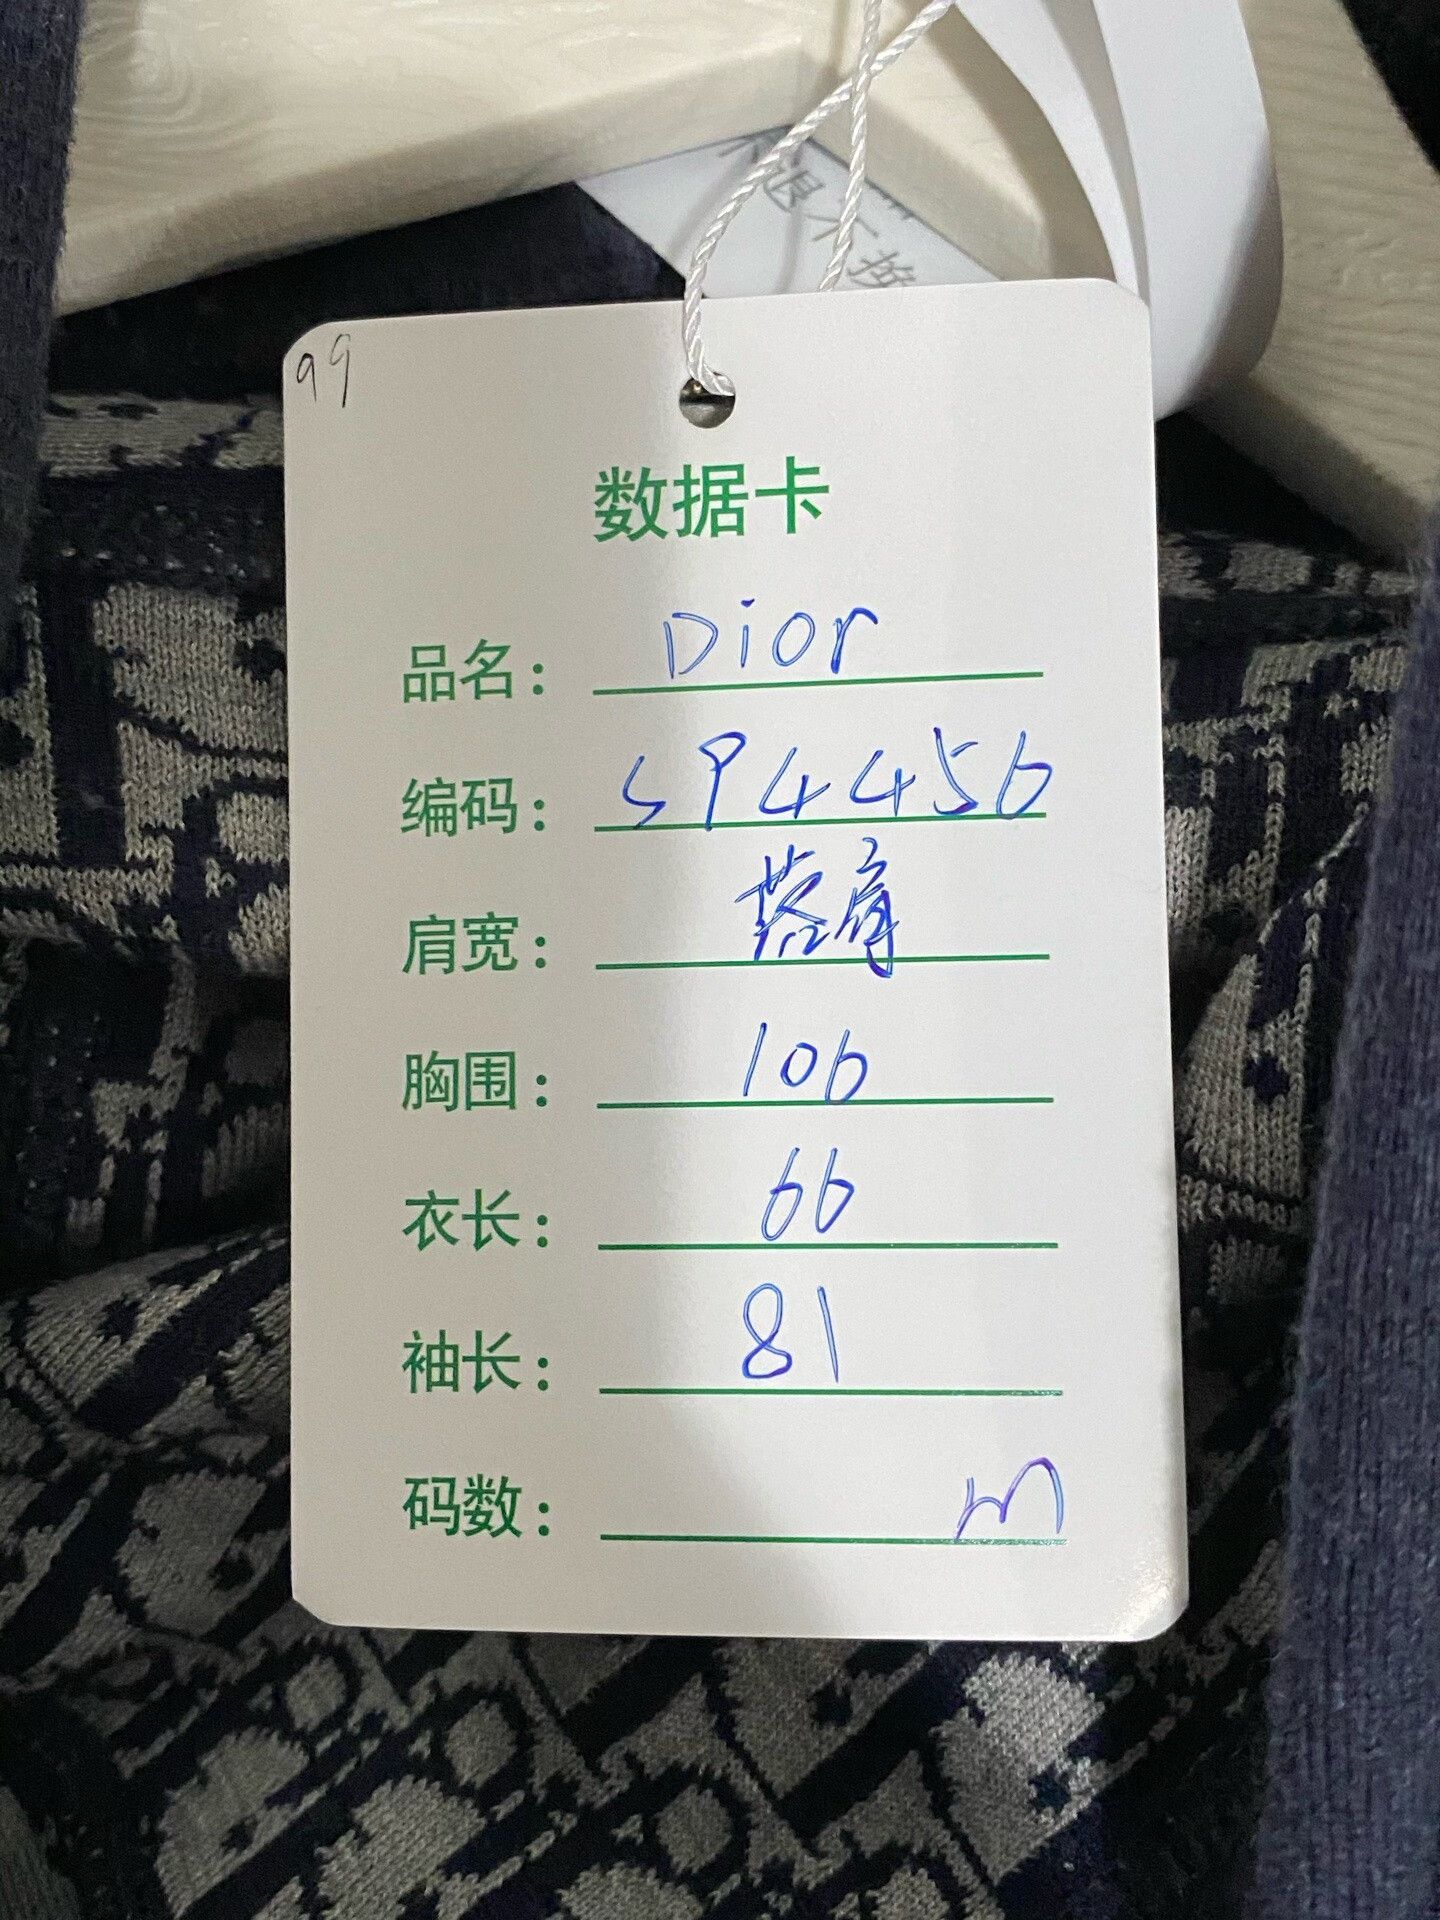 退不换
99
数据卡
品名: Dior
编码: SP4456
肩宽: 落肩
胸围: 106
衣长: 66
袖长: 81
码数: m